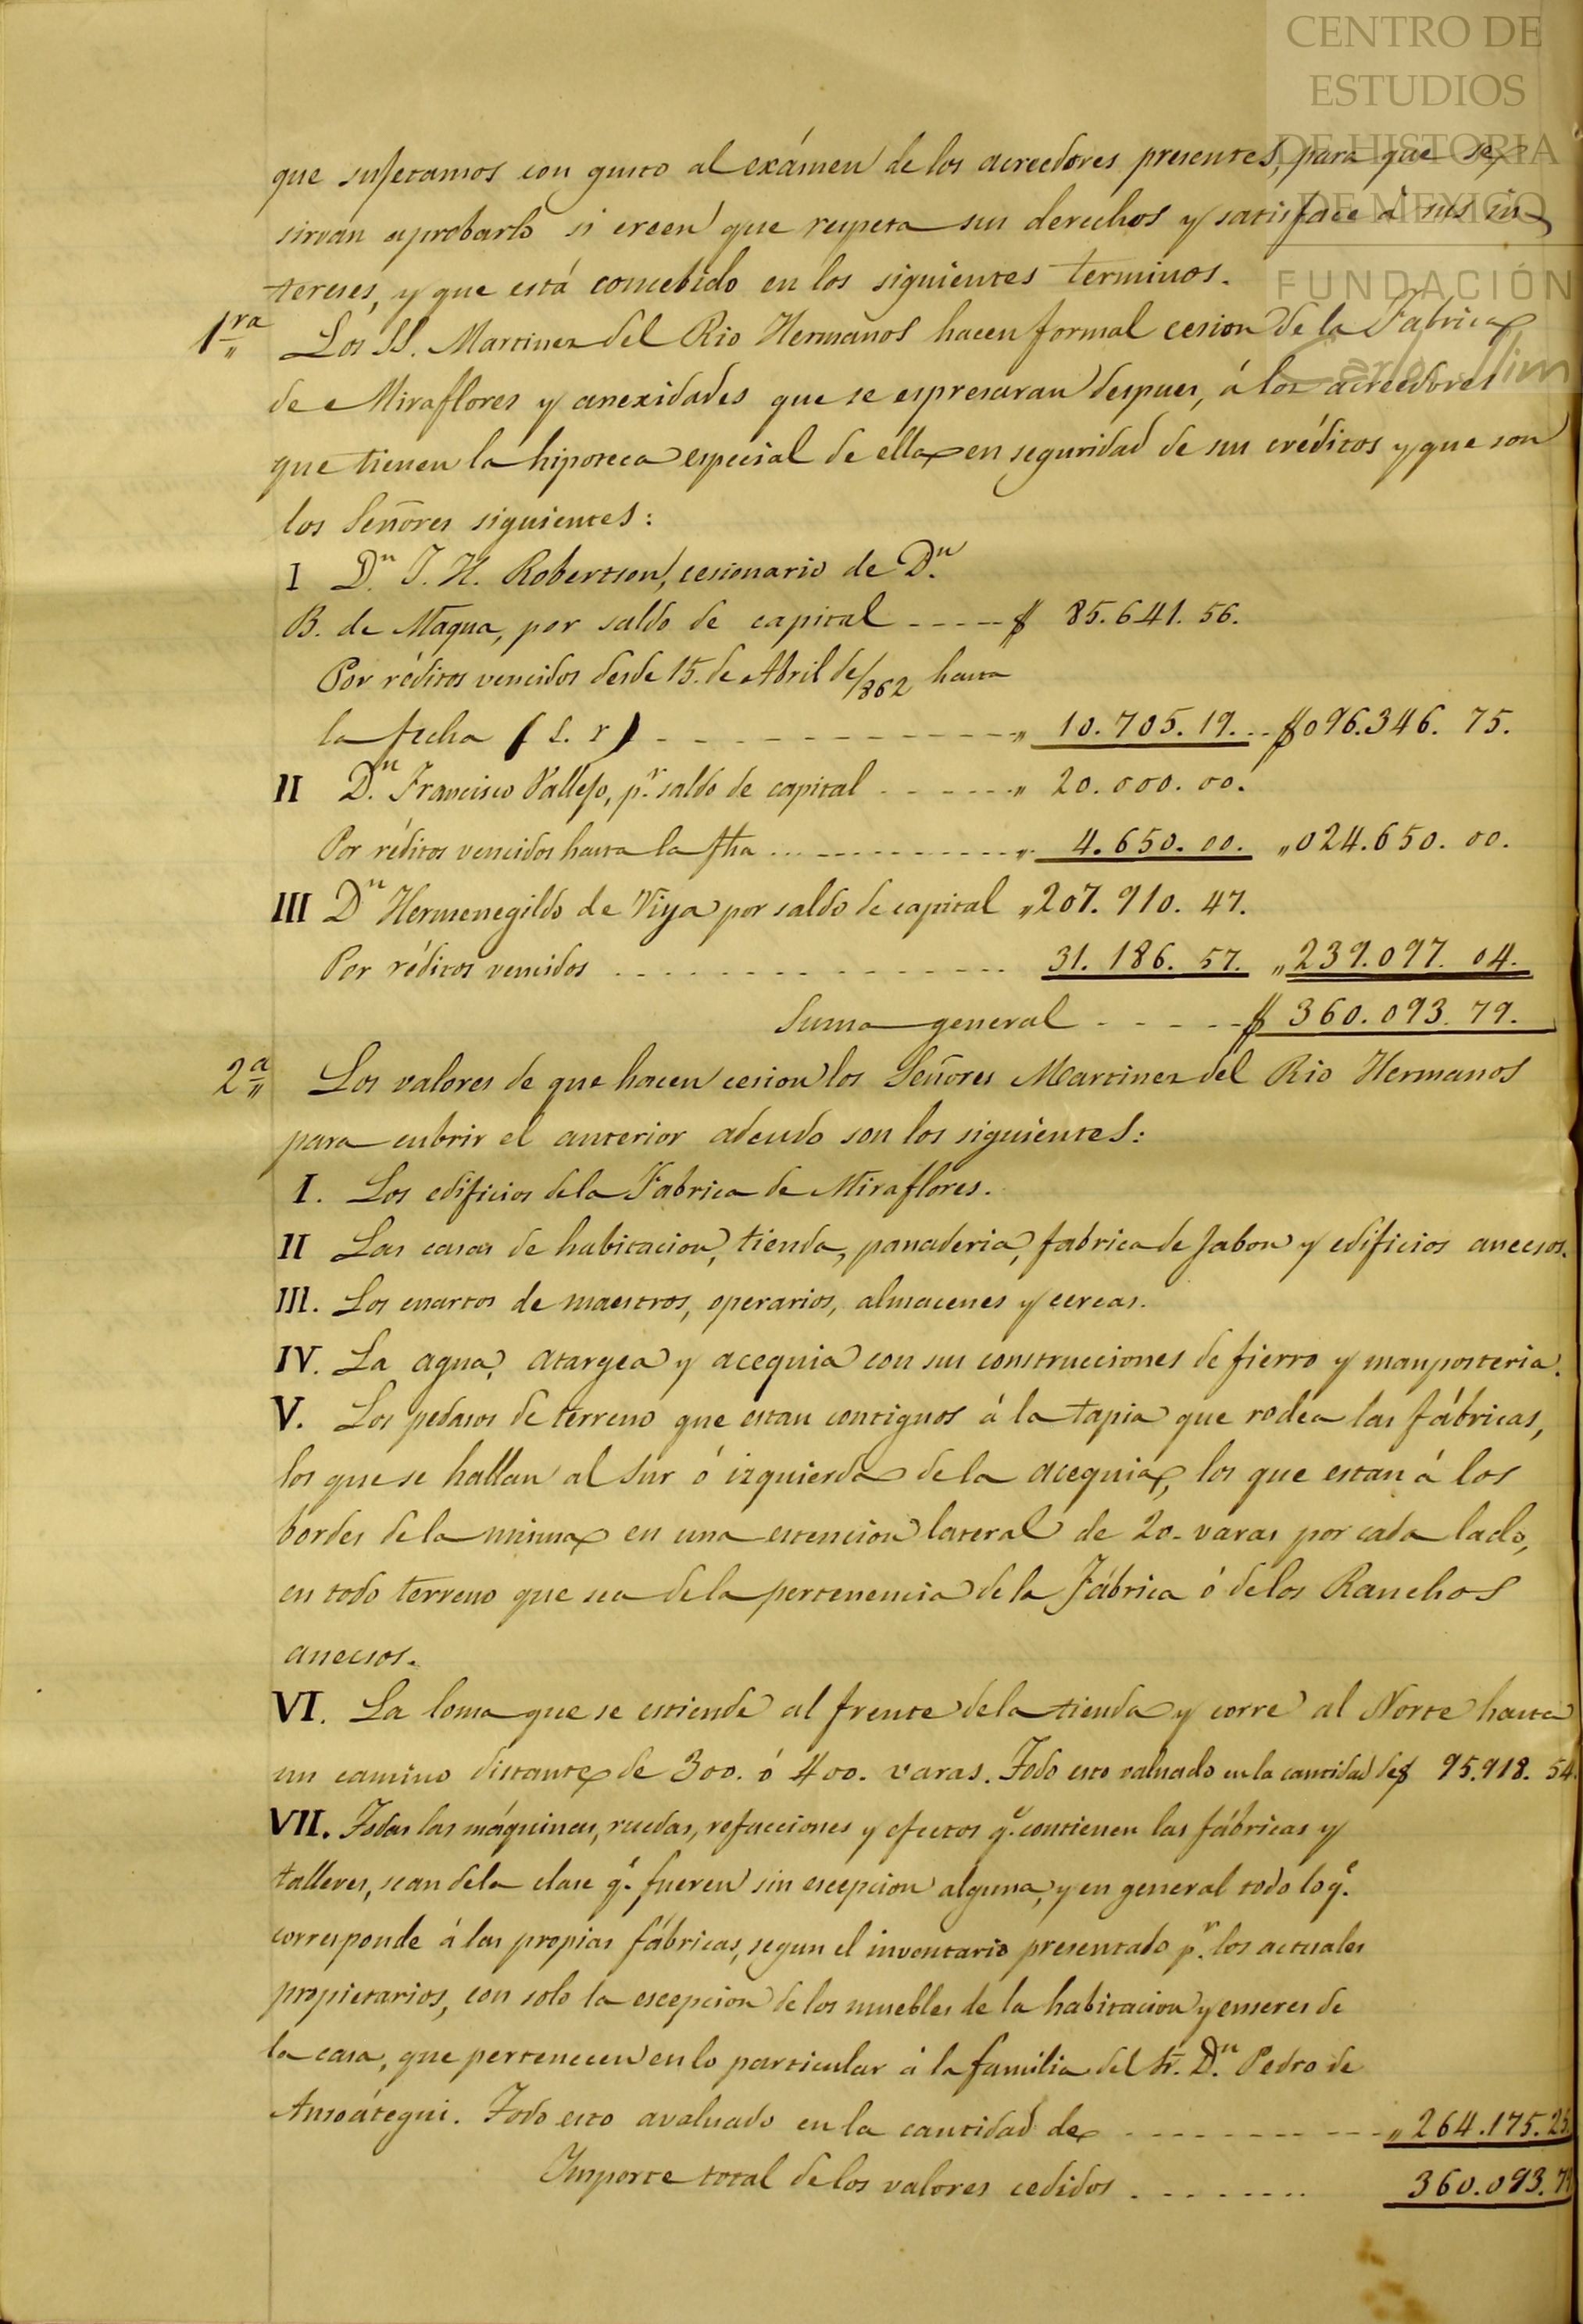 CENTRO DE
ESTUDIOS
DE HISTORIA
DE MEXICO
FUNDACIÓN
Carlos Slim
que sujetamos con gusto al exámen de los acreedores presentes, para que se
sirvan aprobarlo si creen que respeta sus derechos y satisface á sus in-
tereses, y que está concebido en los siguientes terminos.
1ra Los SS. Martinez del Rio Hermanos hacen formal cesion de la Fabrica
de Miraflores y anexidades que se espresaran despues, á los acreedores
que tienen la hipoteca especial de ella en seguridad de sus créditos y que son
los Señores siguientes:
I Dn. J. H. Robertson, cesionario de Dn.
B. de Maqua, por saldo de capital - - - - - $ 85.641. 56.
Por réditos vencidos desde 15. de Abril de/862 hasta
la fecha ( S. Y ) - - - - - - - - - - - - - „ 10.705.19. - - $ 096.346. 75.
II Dn. Francisco Vallejo, pr. saldo de capital - - - - - - „ 20.000. 00.
Por réditos vencidos hasta la fha ... - - - - - - - - - - „ 4.650. 00. „ 024.650. 00.
III Dn Hermenegildo de Viya por saldo de capital „ 207. 910. 47.
Por réditos vencidos - - - - - - - - - - - - - - - 31. 186. 57. „ 239.097. 04.
Suma general - - - - - $ 360.093. 79.
2a„ Los valores de que hacen cesion los Señores Martinez del Rio Hermanos
para cubrir el anterior adeudo son los siguientes:
I. Los edificios de la Fabrica de Miraflores.
II Las casas de habitacion, tienda, panaderia, fabrica de Jabon y edificios anecsos.
III. Los cuartos de maestros, operarios, almacenes y cercas.
IV. La agua, atargea y acequia con sus construcciones de fierro y manposteria.
V. Los pedasos de terreno que estan contiguos á la tapia que rodéa las fábricas,
los que se hallan al Sur ó izquierda de la acequia, los que estan á los
bordes de la misma en una estencion lateral de 20- varas por cada lado,
en todo terreno que sea de la pertenencia de la Fábrica ó de los Ranchos
anecsos.
VI. La loma que se estiende al frente de la tienda y corre al Norte hasta
un camino distante de 300. ó 400. varas. Todo esto valuado en la cantidad de $ 95.918. 54.
VII. Todas las máquinas, ruedas, refacciones y efectos qe. contienen las fábricas y
talleres, sean de la clase qe. fueren sin escepcion alguna, y en general todo lo qe.
corresponde á las propias fábricas, segun el inventario presentado pr. los actuales
propietarios, con solo la escepcion de los muebles de la habitacion y enseres de
la casa, que pertenecen en lo particular á la familia del Sr. Dn. Pedro de
Ansoátegui. Todo esto avaluado en la cantidad de - - - - - - - - - - - „ 264.175.25
Importe total de los valores cedidos . - - - - - - - 360.093. 79